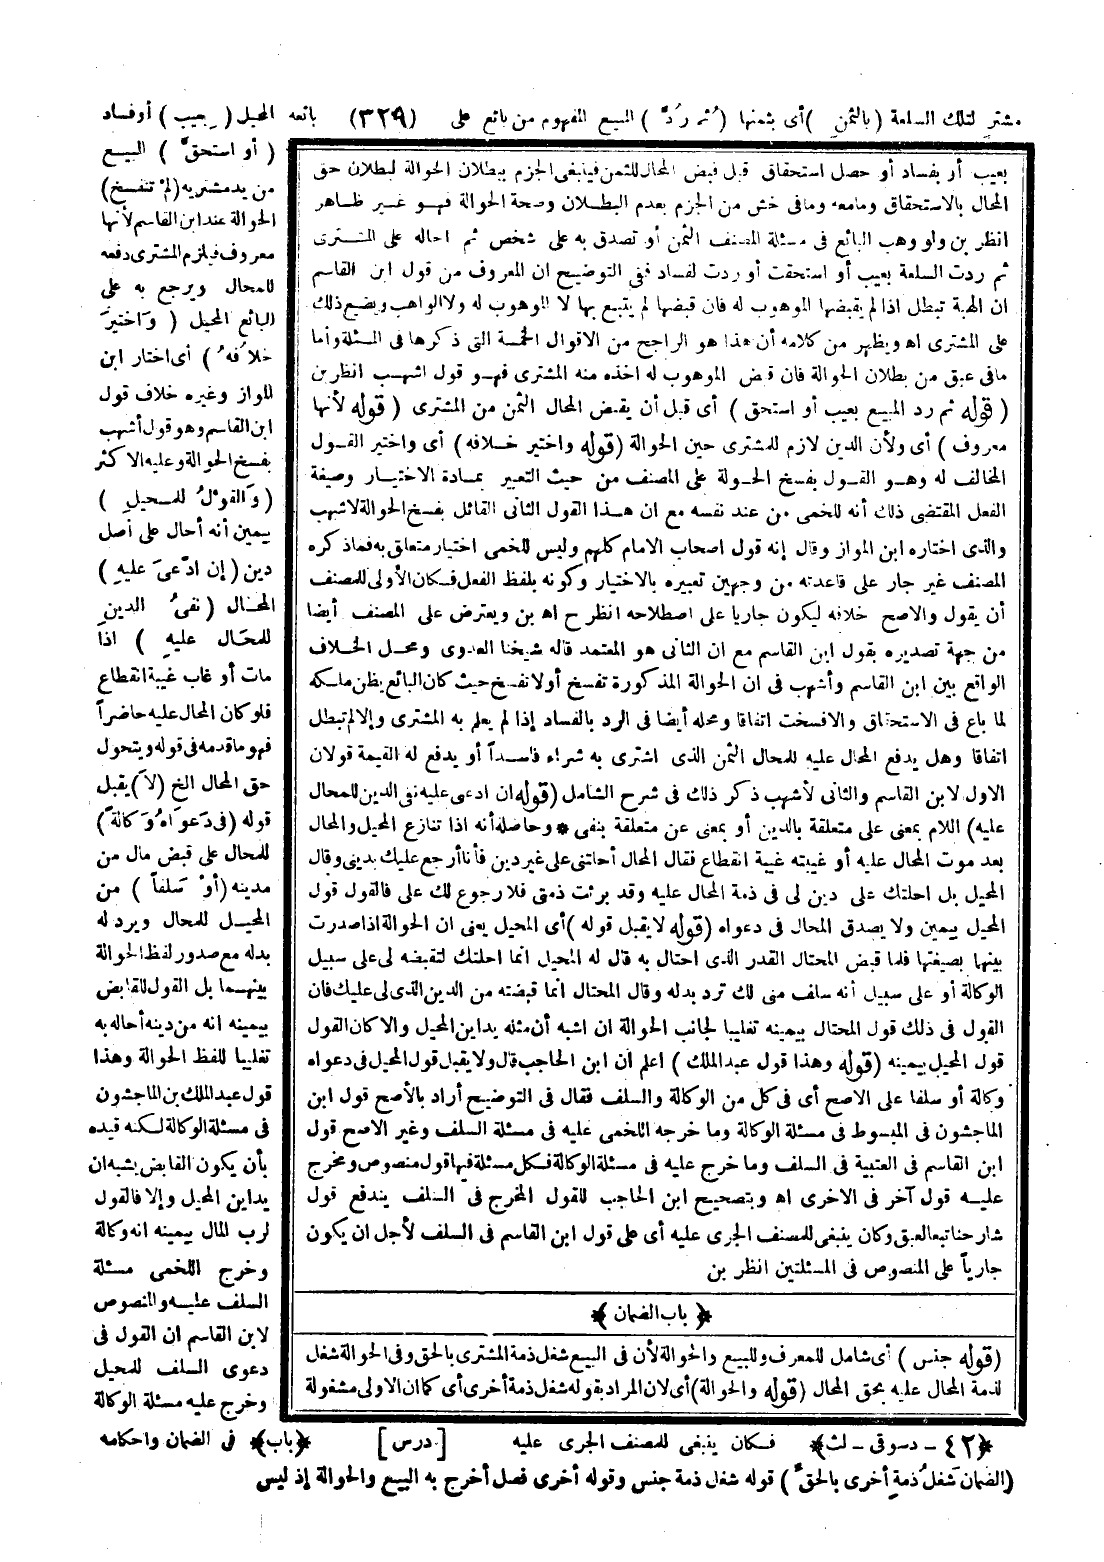 مشتر لتلك السلعة (بالثمن) أى بثمنها (ثم رُدَّ) المبيع المفهوم من بائع على (٣٢٩) بائعه المحيل (بعيب) أوفساد
(أو استحقَّ) المبيع
من يد مشتريه (لم تنفسخ)
الحوالة عند ابن القاسم لأنها
معروف فيلزم المشترى دفعه
للمحال ويرجع به على
البائع المحيل (وَاختيرَ
خلافُه) أى اختار ابن
المواز وغيره خلاف قول
ابن القاسم وهو قول أشهب
بفسخ الحوالة وعليه الاكثر
(وَالقولُ للمحيلِ)
بيمين أنه أحال على أصل
دين (إن ادّعىَ عليهِ)
المحال (نفىُ الدينِ
للمحَال عليهِ) اذا
مات أو غاب غيبة انقطاع
فلو كان المحال عليه حاضراً
فهو ما قدمه فى قوله ويتحول
حق المحال الخ (لاَ) يقبل
قوله (فى دَعوَاهُ وَكالةً)
للمحال على قبض مال من
مدينه (أوْ سَلفاً) من
المحيل للمحال ويرد له
بدله مع صدور لفظ الحوالة
بينهما بل القول للقابض
بيمينه انه من دينه أحاله به
تغليبا للفظ الحوالة وهذا
قول عبد الملك بن الماجشون
فى مسئلة الوكالة لكنه قيده
بأن يكون القابض يشبه ان
يداين المحيل وإلا فالقول
لرب المال بيمينه انه وكالة
وخرج اللخمى مسئلة
السلف عليه والمنصوص
لابن القاسم ان القول فى
دعوى السلف للمحيل
وخرج عليه مسئلة الوكالة
بعيب أو بفساد أو حصل استحقاق قبل قبض المحال للثمن فينبغى الجزم ببطلان الحوالة لبطلان حق
المحال بالاستحقاق وما معه وما فى خش من الجزم بعدم البطلان وصحة الحوالة فهو غير ظاهر
انظر بن ولو وهب البائع فى مسئلة المصنف الثمن أو تصدق به على شخص ثم احاله على المشترى
ثم ردت السلعة بعيب أو استحقت أو ردت لفساد ففى التوضيح ان المعروف من قول ابن القاسم
ان الهبة تبطل اذا لم يقبضها الموهوب له فان قبضها لم يتبع بها لا الموهوب له ولا الواهب ويضيع ذلك
على المشترى اه ويظهر من كلامه أن هذا هو الراجح من الاقوال الخمسة التى ذكرها فى المسئلة وأما
ما فى عبق من بطلان الحوالة فان قبض الموهوب له اخذه منه المشترى فهو قول اشهب انظر بن
(قوله ثم رد المبيع بعيب أو استحق) أى قبل أن يقبض المحال الثمن من المشترى (قوله لأنها
معروف) أى ولأن الدين لازم للمشترى حين الحوالة (قوله واختير خلافه) أى واختير القول
المخالف له وهو القول بفسخ الحوالة على المصنف من حيث التعبير بمادة الاختيار وصيغة
الفعل المقتضى ذلك أنه للخمى من عند نفسه مع ان هذا القول الثانى القائل بفسخ الحوالة لاشهب
والذى اختاره ابن المواز وقال إنه قول اصحاب الامام كلهم وليس للخمى اختيار متعلق به فما ذكره
المصنف غير جار على قاعدته من وجهين تعبيره بالاختيار وكونه بلفظ الفعل فكان الأولى للمصنف
أن يقول والاصح خلافه ليكون جاريا على اصطلاحه انظر ح اه بن ويعترض على المصنف أيضا
من جهة تصديره بقول ابن القاسم مع ان الثانى هو المعتمد قاله شيخنا العدوى ومحل الخلاف
الواقع بين ابن القاسم وأشهب فى ان الحوالة المذكورة تفسخ أولا تفسخ حيث كان البائع يظن ملكه
لما باع فى الاستحقاق والافسخت اتفاقا ومحله أيضا فى الرد بالفساد إذا لم يعلم به المشترى وإلا لم تبطل
اتفاقا وهل يدفع المحال عليه للمحال الثمن الذى اشترى به شراء فاسداً أو يدفع له القيمة قولان
الاول لابن القاسم والثانى لأشهب ذكر ذلك فى شرح الشامل (قوله ان ادعى عليه نفى الدين للمحال
عليه) اللام بمعنى على متعلقة بالدين أو بمعنى عن متعلقة بنفى * وحاصله أنه اذا تنازع المحيل والمحال
بعد موت المحال عليه أو غيبته غيبة انقطاع فقال المحال أحلتنى على غير دين فأنا أرجع عليك بدينى وقال
المحيل بل احلتك على دين لى فى ذمة المحال عليه وقد برئت ذمتى فلا رجوع لك على فالقول قول
المحيل بيمين ولا يصدق المحال فى دعواه (قوله لا يقبل قوله) أى المحيل يعنى ان الحوالة اذا صدرت
بينها بصيغتها فلما قبض المحتال القدر الذى احتال به قال له المحيل انما احلتك لتقبضه لى على سبيل
الوكالة أو على سبيل أنه سلف منى لك ترد بدله وقال المحتال انما قبضته من الدين الذى لى عليك فان
القول فى ذلك قول المحتال بيمينه تغليبا لجانب الحوالة ان اشبه أن مثله يداين المحيل والا كان القول
قول المحيل بيمينه (قوله وهذا قول عبد الملك) اعلم أن ابن الحاجب قال ولا يقبل قول المحيل فى دعواه
وكالة أو سلفا على الاصح أى فى كل من الوكالة والسلف فقال فى التوضيح أراد بالأصح قول ابن
الماجشون فى المبسوط فى مسئلة الوكالة وما خرجه اللخمى عليه فى مسئلة السلف وغير الاصح قول
ابن القاسم فى العتبية فى السلف وما خرج عليه فى مسئلة الوكالة فكل مسئلة فيها قول منصوص ومخرج
عليه قول آخر فى الاخرى اه وبتصحيح ابن الحاجب للقول المخرج فى السلف يندفع قول
شارحنا تبعا لعبق وكان ينبغى للمصنف الجرى عليه أى على قول ابن القاسم فى السلف لأجل ان يكون
جارياً على المنصوص فى المسئلتين انظر بن
﴿باب الضمان﴾
(قوله جنس) أى شامل للمعرف وللبيع والحوالة لأن فى البيع شغل ذمة المشترى بالحق وفى الحوالة شغل
لذمة المحال عليه بحق المحال (قوله والحوالة) أى لان المراد بقوله شغل ذمة أخرى أى كما ان الاولى مشغولة
﴿٤٢ - دسوقى - لث﴾ فكان ينبغى للمصنف الجرى عليه [درس] ﴿باب﴾ فى الضمان واحكامه
(الضمان شَغلُ ذمةٍ أخرى بالحقِّ) قوله شغل ذمة جنس وقوله أخرى فصل أخرج به البيع والحوالة إذ ليس